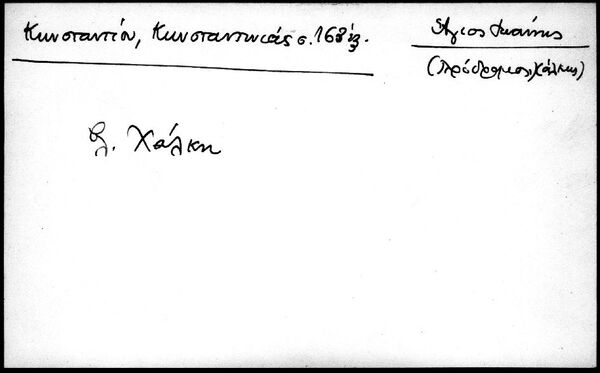 Κωνσταντίου, Κωνσταντινιάς σ. 168 ἑξ.
Ἅγιος Ἰωάννης
(Πρόδρομος, Χάλκης)
βλ. Χάλκη